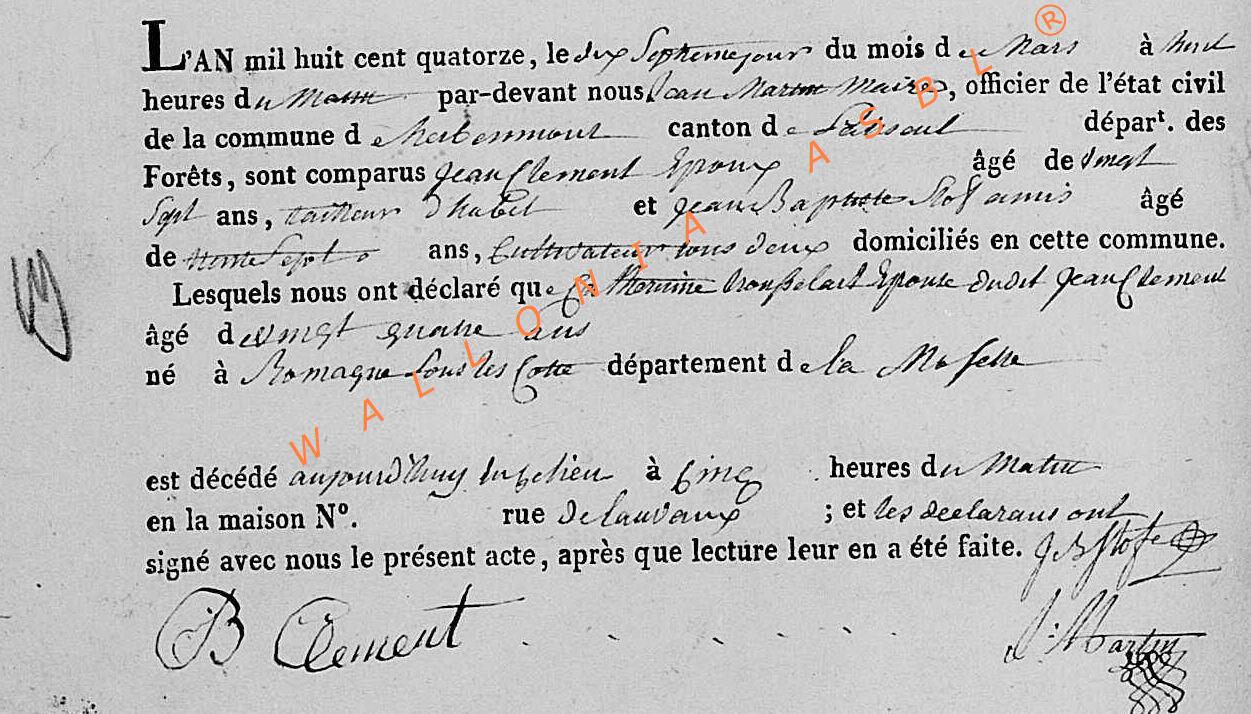 L'AN mil huit cent quatorze, le dix Septieme jour du mois de Mars à
heures du Matin par-devant nous Jean Martin Maire, officier de l'état civil
de la commune d'herbeumont canton de départ. des
Forêts, sont comparus Jean Clement Epoux âgé de vingt
Sept ans, tailleur d'habit et Jean Baptiste âgé
de trente Sept ans, Cultivateur tous deux domiciliés en cette commune.
Lesquels nous ont déclaré que Epouse dudit Jean Clement
âgé de vingt quatre ans
né à Romagne Sous les Cotte département de la Moselle
est décédé aujourd'huy à Cinq heures du Matin
en la maison N°. rue de lauvaux ; et les declarans ont
signé avec nous le présent acte, après que lecture leur en a été faite.
JB Clement
J: Martin
WALLONIA ASBL ®